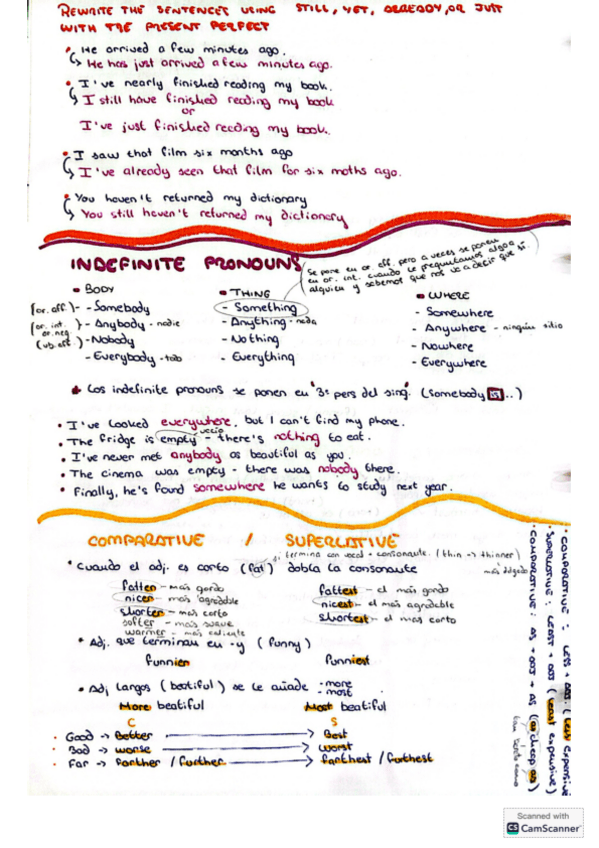 REWRITE THE SENTENCES USING STILL, YET, ALREADY, OR JUST
WITH THE PRESENT PERFECT
• He arrived a few minutes ago.
↳ He has just arrived a few minutes ago.
• I've nearly finished reading my book.
↳ I still have finished reading my book
or
I've just finished reading my book.
• I saw that film six months ago
↳ I've already seen that film for six moths ago.
• You haven't returned my dictionary
↳ You still haven't returned my dictionary
INDEFINITE PRONOUNS
Se pone en or. aff. pero a veces se ponen
en or. int. cuando le preguntamos algo a
alguien y sabemos que nos va a decir que sí
• BODY
(or. aff.) - Somebody
(or. int. or. neg.) - Anybody - nadie
(vb. aff.) - Nobody
- Everybody - todo
• THING
- Something
- Anything - nada
- Nothing
- Everything
• WHERE
- Somewhere
- Anywhere - ningún sitio
- Nowhere
- Everywhere
* Los indefinite pronouns se ponen en 3ª pers del sing. (Somebody is..)
• I've looked everywhere, but I can't find my phone.
vacio
• The fridge is empty - there's nothing to eat.
• I've never met anybody as beautiful as you.
• The cinema was empty - there was nobody there.
• Finally, he's found somewhere he wants to study next year.
COMPARATIVE / SUPERLATIVE
si termina con vocal + consonante. (thin → thinner)
más delgado
• Cuando el adj. es corto (fat) dobla la consonante
fatter - más gordo
nicer - más agradable
shorter - más corto
softer - más suave
warmer - más caliente
fattest - el más gordo
nicest - el más agradable
shortest - el mas corto
• Adj. que terminan en -y (funny)
funnier funniest
• Adj largos (beatiful) se le añade - more
- most
More beatiful Most beatiful
C S
• Good → Better → Best
• Bad → worse → worst
• Far → farther / further → farthest / furthest
• COMPARATIVE : LESS + ADJ. (less expensive)
• SUPERLATIVE : LEAST + ADJ (least expensive)
• COMPARATIVE : AS + ADJ + AS (as cheap as)
Scanned with
CS CamScanner